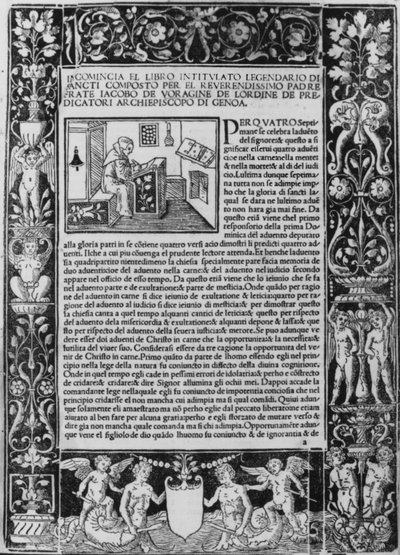 INCOMINCIA EL LIBRO INTITVLATO LEGENDARIO DI
SANCTI COMPOSTO PER EL REVERENDISSIMO PADRE
FRATE IACOBO DE VORAGINE DE LORDINE DE PRE
DICATORI ARCHIEPISCOPO DI GENOA.
PER QVATRO Septi
mane se celebra laduēto
del signore: & questo a si
gnificar esserui quatro aduēti
cioe nella carne: nella mente:
& nella morte: & al di del iudi
cio. Lultima dunque septima
na tutta non se adimpie impo
ho che la gloria di sancti la
qual se dara ne lultimo aduē
to non hara gia mai fine. Da
questo eria viene chel primo
responsorio della prima Do
minica del aduento deputato
alla gloria patri in se cōtiene quattro versi acio dimostri li predicti quattro ad
uenti. Ilche a cui piu cōuenga el prudente lectore attenda. Et benche laduento
sia quadripartito nientedimeno la chiesia specialmente pare facia memoria de
duo aduenti cioe del aduento nella carne: & del aduento nel iudicio secondo
appare nel officio de esso tempo. Da questo etiā viene che lo ieiunio che se fa
nel aduento parte e de exultatione: & parte de mesticia. Onde quādo per ragio
ne del aduento in carne si dice ieiunio de exultatione & leticia: quarto per ra
gione del aduento al iudicio si dice ieiunio di mesticia: & per dimostrar questo
la chiesia canta a quel tempo alquanti cantici de leticia: & questo per rispecto
del aduento della misericordia & exultatione: & alquanti depone & lassa: & que
sto per rispecto del aduento della seuera iusticia: & merore. Se puo adunque ve
dere esser doi aduenti de Christo in carne che la opportunita: & la necessita: &
lutilita del viuer suo. Considerasi essere da tre cagione la opportunita del ve
nir de Christo in carne. Primo quāto da parte de lhomo essendo egli nel prin
cipio nella lege della natura fu conuincto in diffecto della diuina cognitione:
Onde in quel tempo egli cade in pessimi errori de idolatria: & perho e cōstrecto
de cridare: & cridare & dire Signor allumina gli ochii mei. Dapoi accade la
comandante lege nella quale egli fu conuincto de impotentia conciosia che nel
principio cridasse el non mancha cui adimpia ma si qual comādi. Quiui adun
que solamente eli amaestrato ma nō perho eglie dal peccato liberato ne etiam
aiutato al ben fare per alcuna gratia: perho e egli sforzato de mutare verso & de
dire gia non mancha quale comanda ma si chi adimpia. Opportunamēte adun
que vene el figliolo de dio quādo lhuomo fu conuincto & de ignorantia & de
a